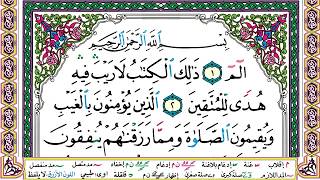 بِسْمِ ٱللَّهِ ٱلرَّحْمَٰنِ ٱلرَّحِيمِ
الٓمٓ ١ ذَٰلِكَ ٱلْكِتَٰبُ لَا رَيْبَ فِيهِ
هُدًى لِّلْمُتَّقِينَ ٢ ٱلَّذِينَ يُؤْمِنُونَ بِٱلْغَيْبِ
وَيُقِيمُونَ ٱلصَّلَوٰةَ وَمِمَّا رَزَقْنَٰهُمْ يُنفِقُونَ